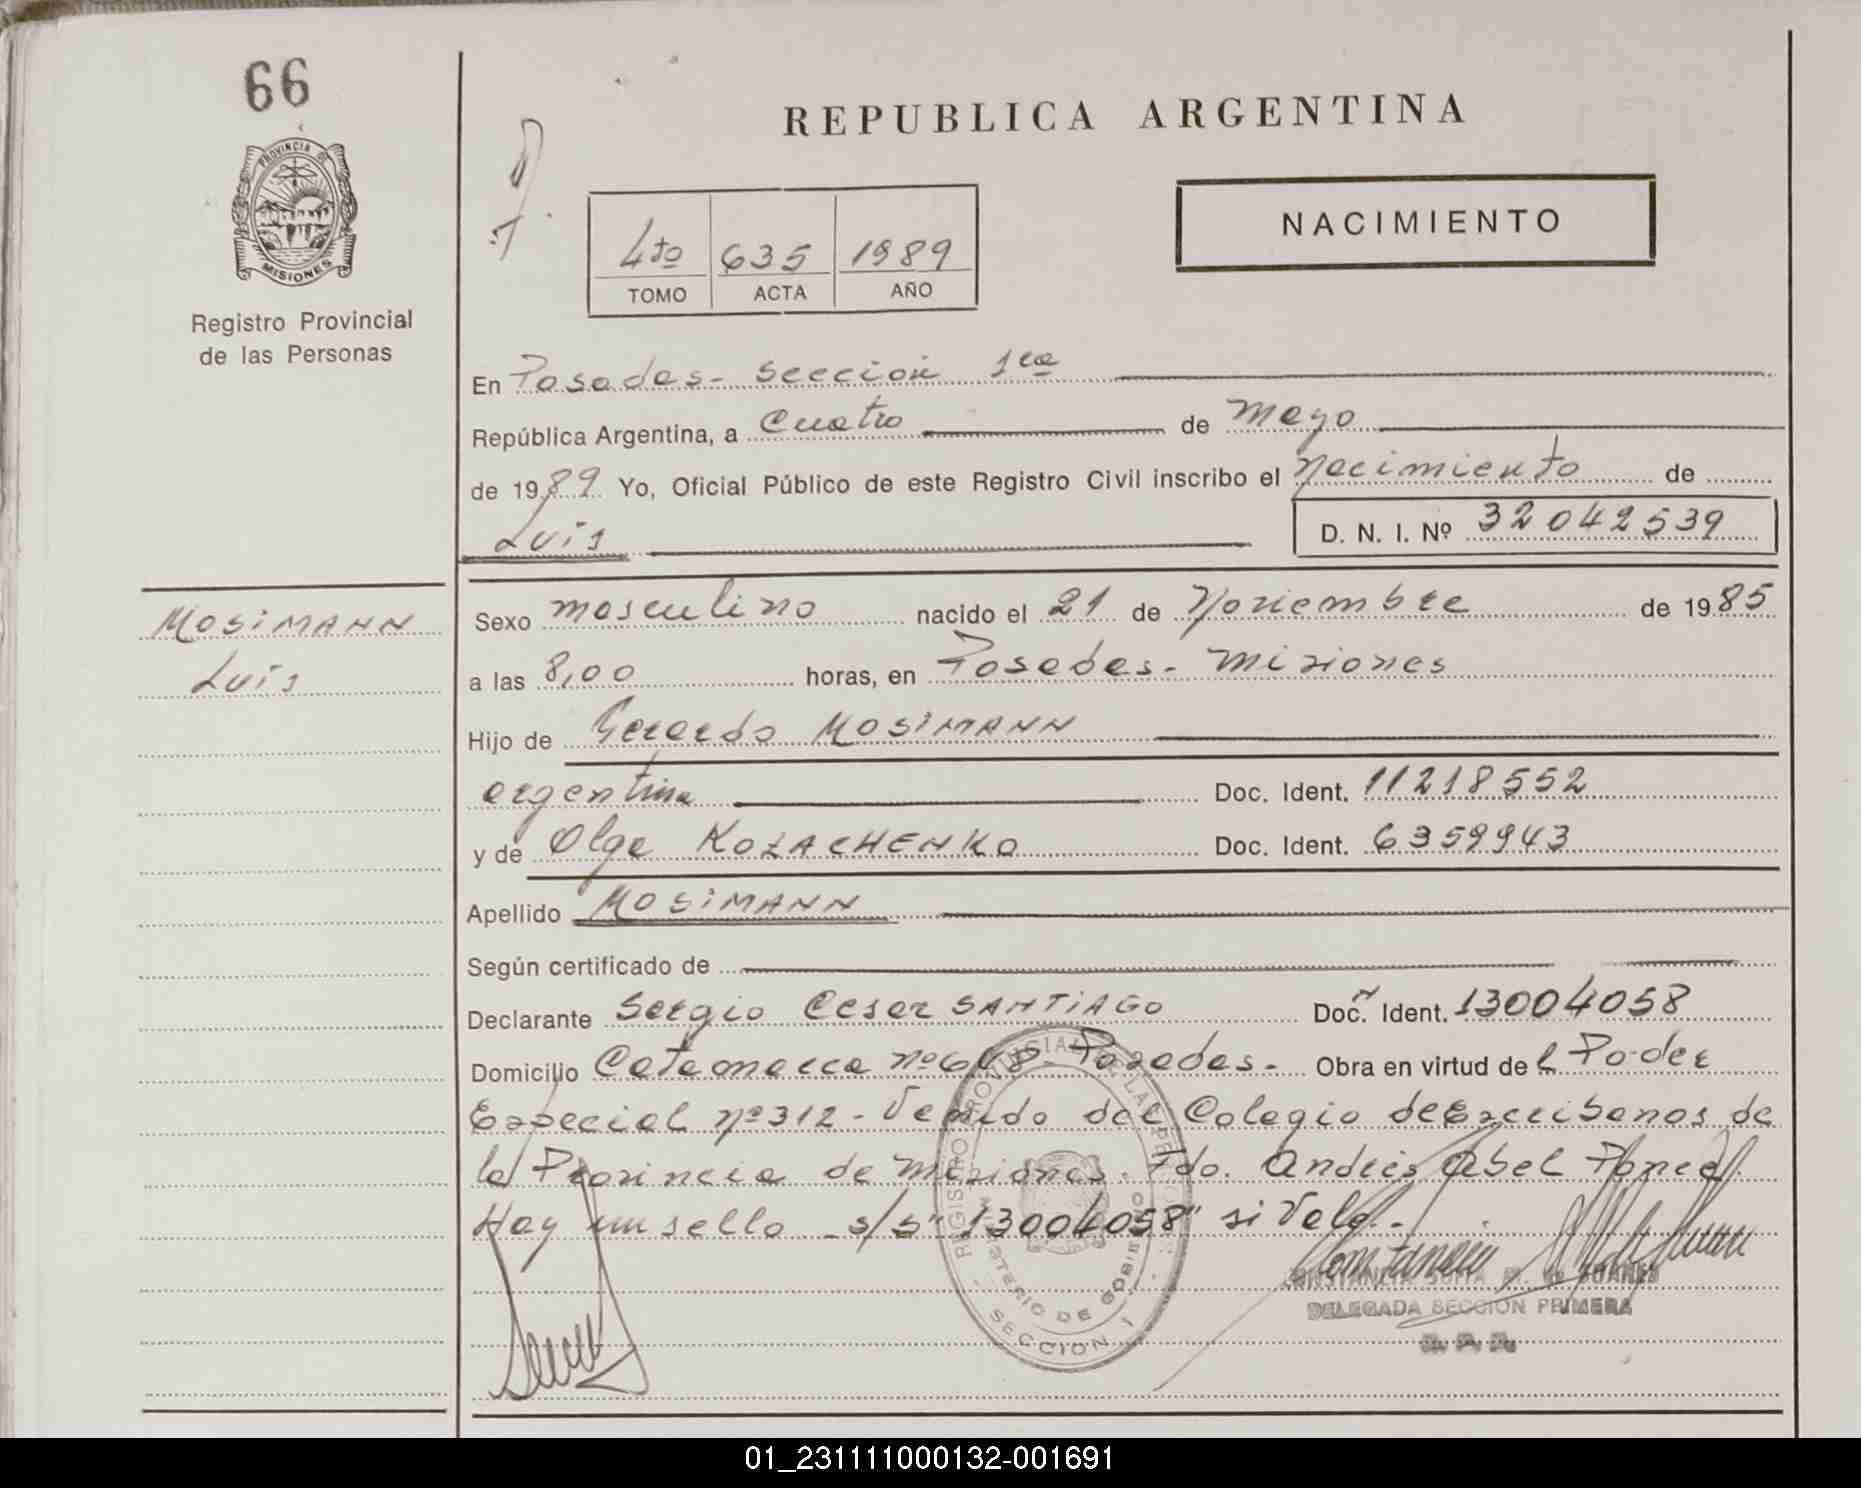 66
PROVINCIA DE
MISIONES
Registro Provincial
de las Personas
REPUBLICA ARGENTINA
NACIMIENTO
4to 635 1989
TOMO ACTA AÑO
En Posadas- Sección 1ra
República Argentina, a Cuatro de Mayo
de 1989 Yo, Oficial Público de este Registro Civil inscribo el nacimiento de
Luis D. N. I. Nº 32042539
MOSiMANN
Luis
Sexo masculino nacido el 21 de Noviembre de 1985
a las 8,00 horas, en Posadas- Misiones
Hijo de Gerardo MOSiMANN
argentina Doc. Ident. 11218552
y de Olga KOZACHENKO Doc. Ident. 6359943
Apellido MOSiMANN
Según certificado de
Declarante Sergio Cesar SANTiAGO Doc. Ident. 13004058
Domicilio Catamarca nº 648- Posadas- Obra en virtud del Poder
Especial nº 312- Venido del Colegio de Escribanos de
la Provincia de Misiones- Fdo. Andrés Abel
Hay un sello - s/s "13004058" si Vale.-
REGISTRO PROVINCIAL DE LAS PERSONAS
MINISTERIO DE GOBIERNO
- SECCION 1 -
CONSTANCIA SUAREZ
DELEGADA SECCION PRIMERA
R. P. P.
01_231111000132-001691